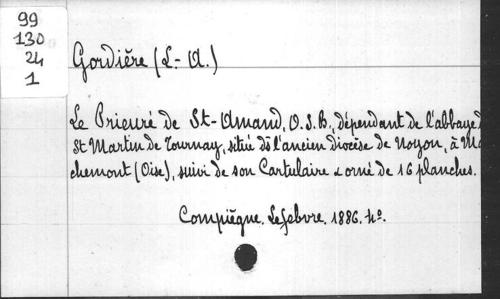 99
130
24
1
Gordière (L.-A.)
Le Prieuré de St-Amand, O.S.B., dépendant de l'abbaye d
St Martin de Tournay, situé ds l'ancien diocèse de Noyon, à Ma
chemont (Oise), suivi de son Cartulaire & orné de 16 planches.
Compiègne. Lefebvre. 1886. 4º.